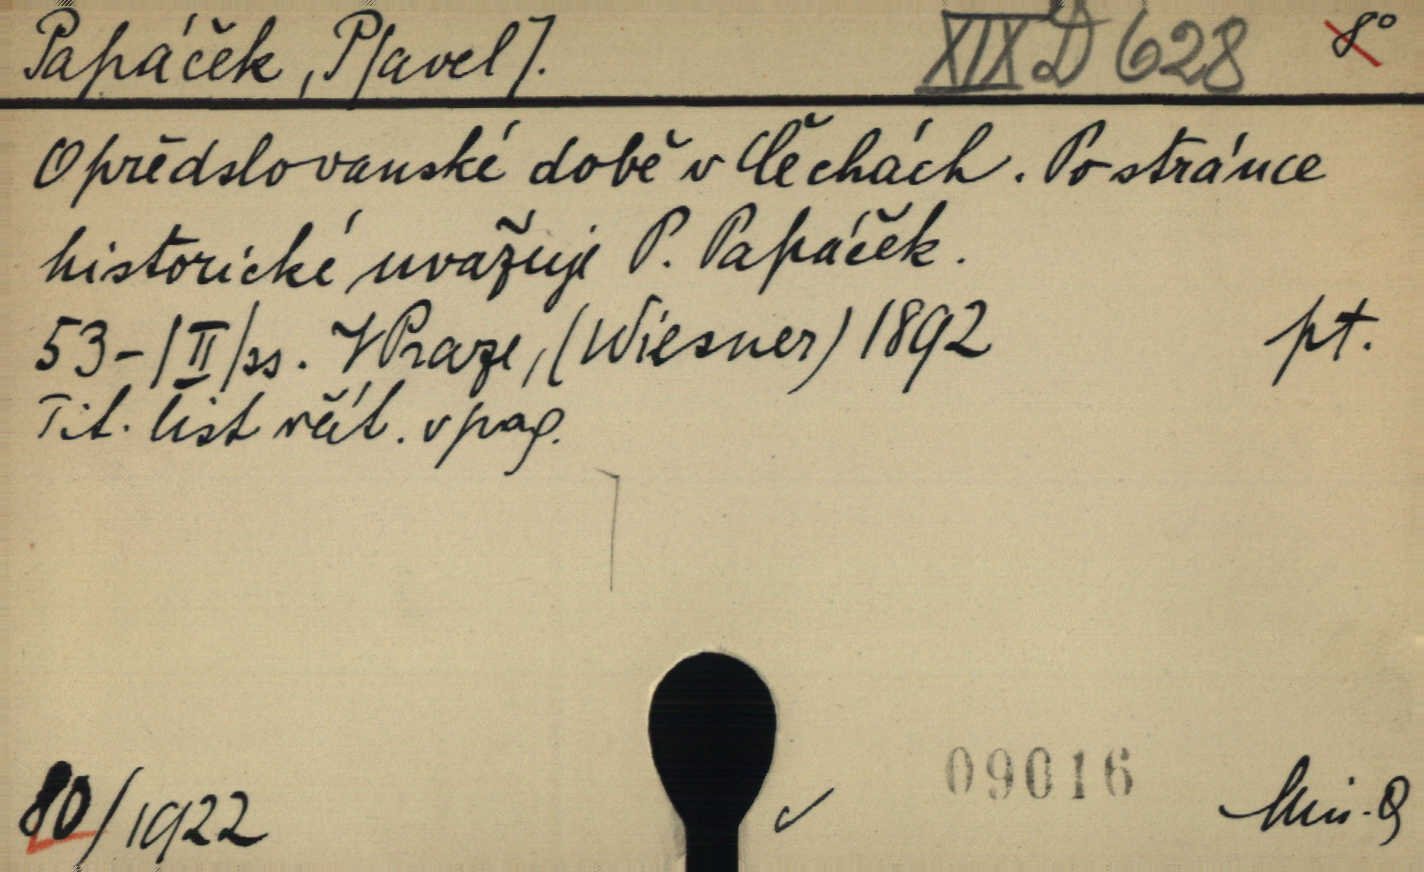 Papáček, P[avel]. XIX D 628 8°
O předslovanské době v Čechách. Po stránce
historické uvažuje P. Papáček.
53-/II/ss. V Praze, (Wiesner) 1892 pt.
Tit. list včít. v pag.
09016
80/1922